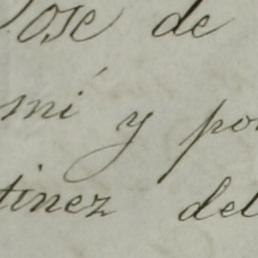 Jose de
mí y por
tinez del